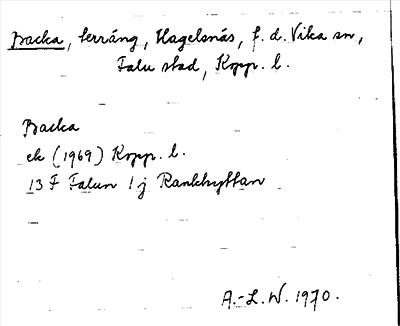 Backa, terräng, Hagelsnäs, f. d. Vika sn,
Falu stad, Kopp. l.
Backa
ek (1969) Kopp. l.
13 F Falun 1 j Rankhyttan
A.-L.W. 1970.